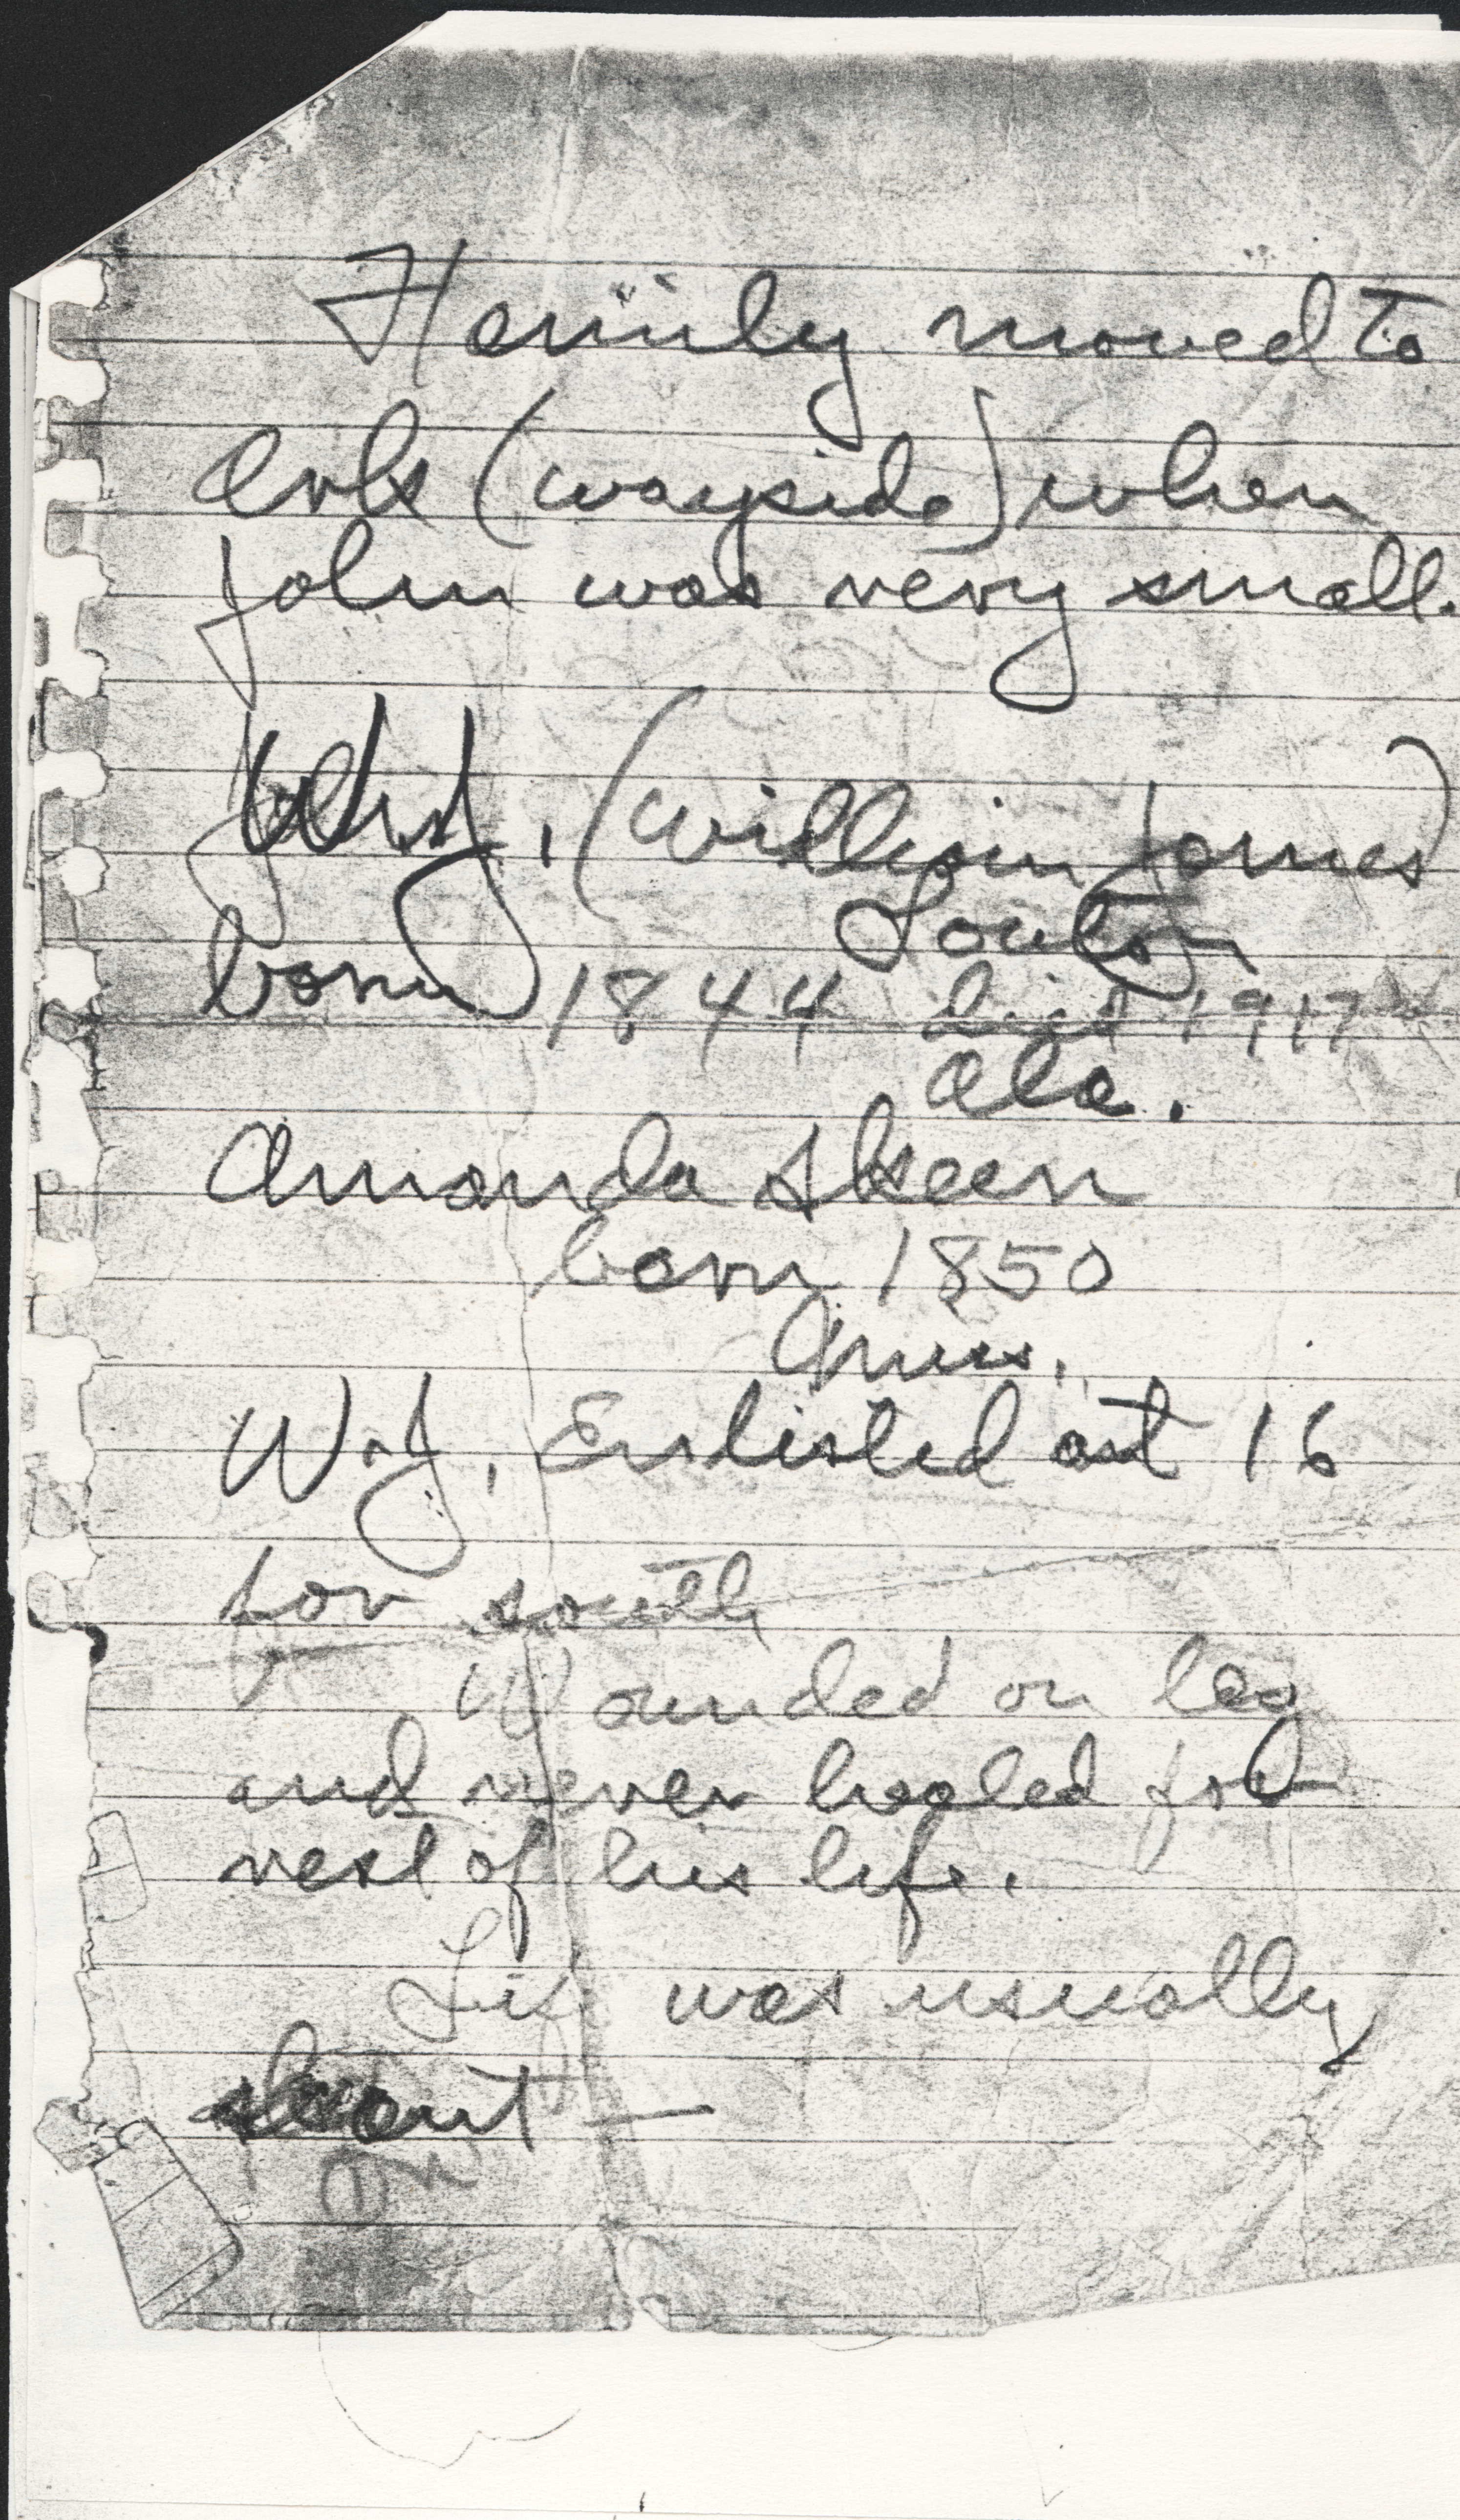 Family moved to
Ark (wayside) when
John was very small.
W.J. (William James)
Louton
born 1844 died 1917
Ala.
Amanda Skeen
born 1850
Miss.
W.J. Enlisted at 16
for south
Wounded on leg
and never healed for
rest of his life.
was usually